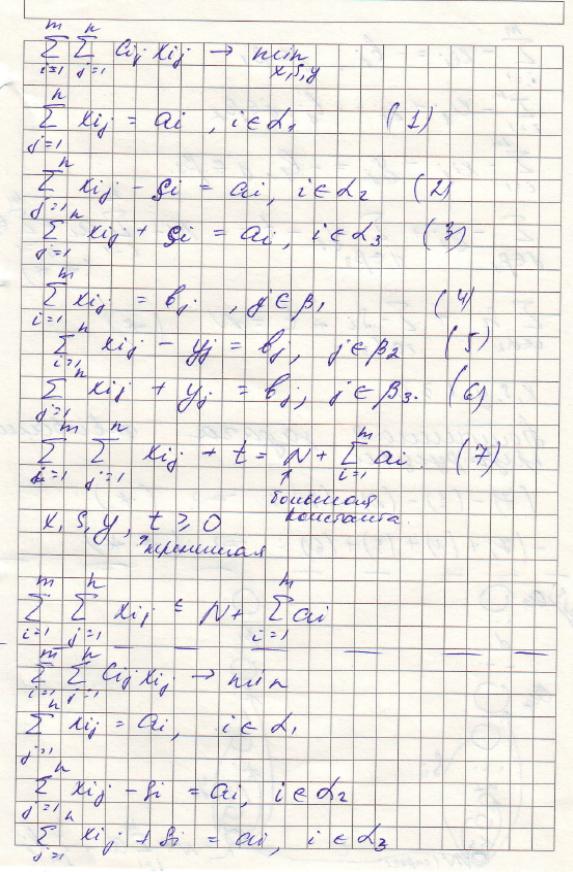 $\sum_{i=1}^{m} \sum_{j=1}^{n} c_{ij} x_{ij} \to \min_{x,s,y}$
$\sum_{j=1}^{n} x_{ij} = a_i , i \in \alpha_1$ (1)
$\sum_{j=1}^{n} x_{ij} - s_i = a_i, i \in \alpha_2$ (2)
$\sum_{j=1}^{n} x_{ij} + s_i = a_i, i \in \alpha_3$ (3)
$\sum_{i=1}^{m} x_{ij} = b_j , j \in \beta_1$ (4)
$\sum_{i=1}^{n} x_{ij} - y_j = b_j, j \in \beta_2$ (5)
$\sum_{j=1}^{n} x_{ij} + y_j = b_j, j \in \beta_3.$ (6)
$\sum_{i=1}^{m} \sum_{j=1}^{n} x_{ij} + t = N + \sum_{i=1}^{m} a_i.$ (7)
↑
большая
константа.
$x, s, y, t \geq 0$
переменная
$\sum_{i=1}^{m} \sum_{j=1}^{n} x_{ij} \leq N + \sum_{i=1}^{m} a_i$
$\sum_{i=1}^{m} \sum_{j=1}^{n} c_{ij} x_{ij} \to \min$
$\sum_{j=1}^{n} x_{ij} = a_i, i \in \alpha_1$
$\sum_{j=1}^{n} x_{ij} - s_i = a_i, i \in \alpha_2$
$\sum_{j=1}^{n} x_{ij} + s_i = a_i, i \in \alpha_3$